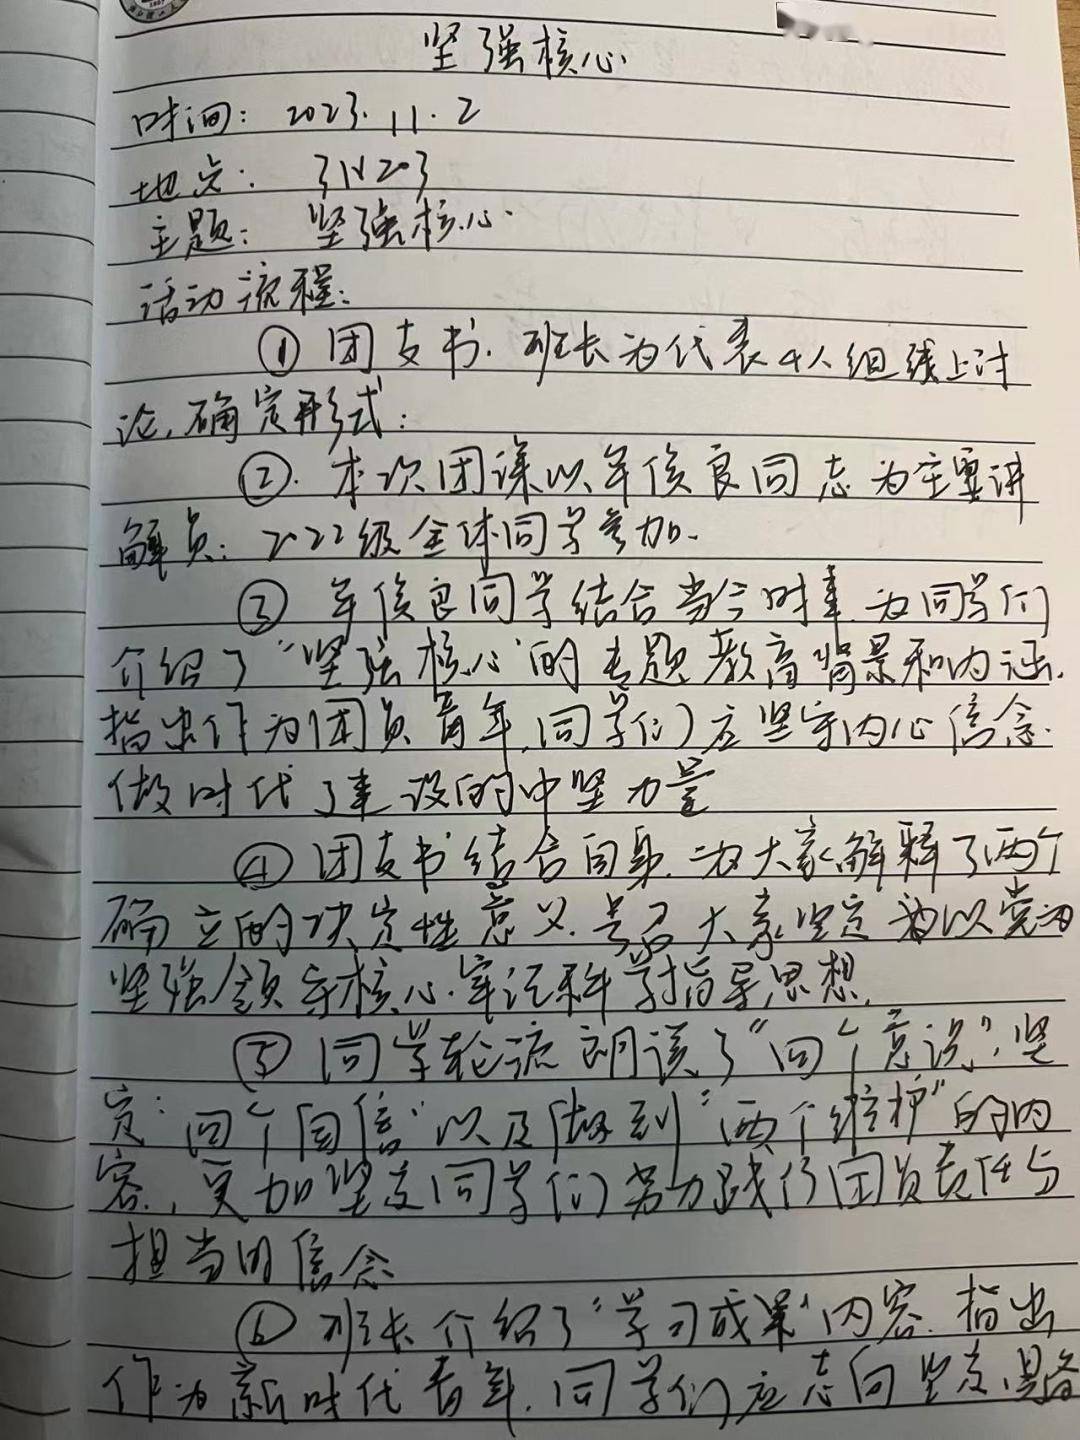 坚强核心
时间: 2023.11.2
地点: 31N203
主题: 坚强核心.
活动流程:
① 团支书. 班长为代表4人组线上讨
论,确定形式:
②. 本次团课以年俊良同志为主要讲
解员: 2022级全体同学参加.
③ 年俊良同学结合当今时事,为同学们
介绍了“坚强核心”的专题教育背景和内涵.
指出作为团员青年,同学们应坚守内心信念.
做时代了建设的中坚力量
④ 团支书结合自身,为大家解释了两个
确立的决定性意义.号召大家坚定 以党为
坚强领导核心.牢记科学指导思想,
⑤ 同学轮流朗读了“四个意识”,坚
定“四个自信”以及做到“两个维护”的内
容,更加坚定同学们努力践行团员责任与
担当的信念
⑥ 班长介绍了“学习成果”内容.指出
作为新时代青年,同学们应志向坚定,具备